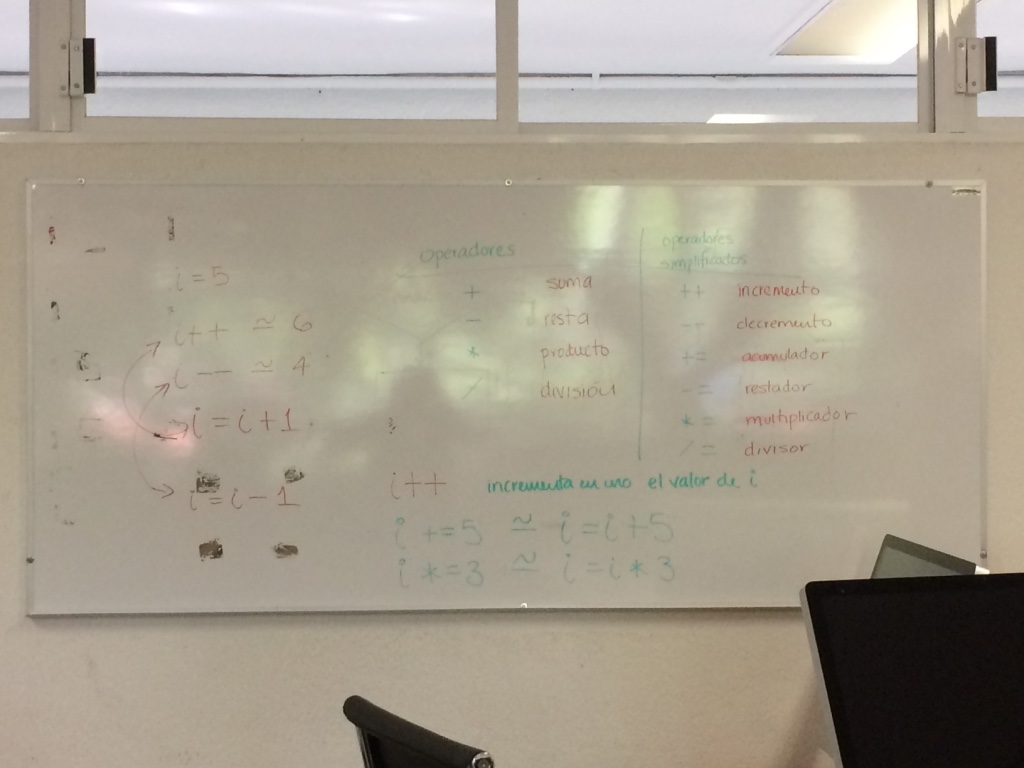 i = 5
i++ ≃ 6
i-- ≃ 4
i = i + 1
i = i - 1
operadores
+ soma
- resta
* producto
/ división
operadores
simplificados
++ incremento
-- decremento
+= acumulador
-= restador
*= multiplicador
/= divisor
i++ incrementa en uno el valor de i
i +=5 ≃ i=i+5
i *=3 ≃ i=i*3